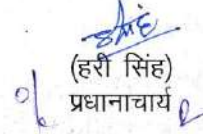 (हरी सिंह)
प्रधानाचार्य